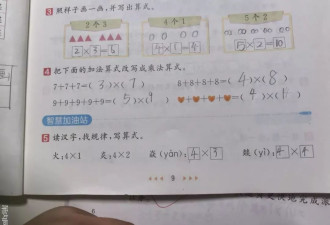 3 照样子画一画,并写出算式。
2个3 4个1 5个2
2×3=6 4×1=4 5×2=10
4 把下面的加法算式改写成乘法算式。
7+7+7=(3)×(7) 8+8+8+8=(4)×(8)
9+9+9+9+9=(5)×(9) ♥+♥+♥+♥=(4)×(1)
智慧加油站
5 读汉字,找规律,写算式。
火:4×1 炎:4×2 焱(yàn):4×3 燚(yì):4×4
9